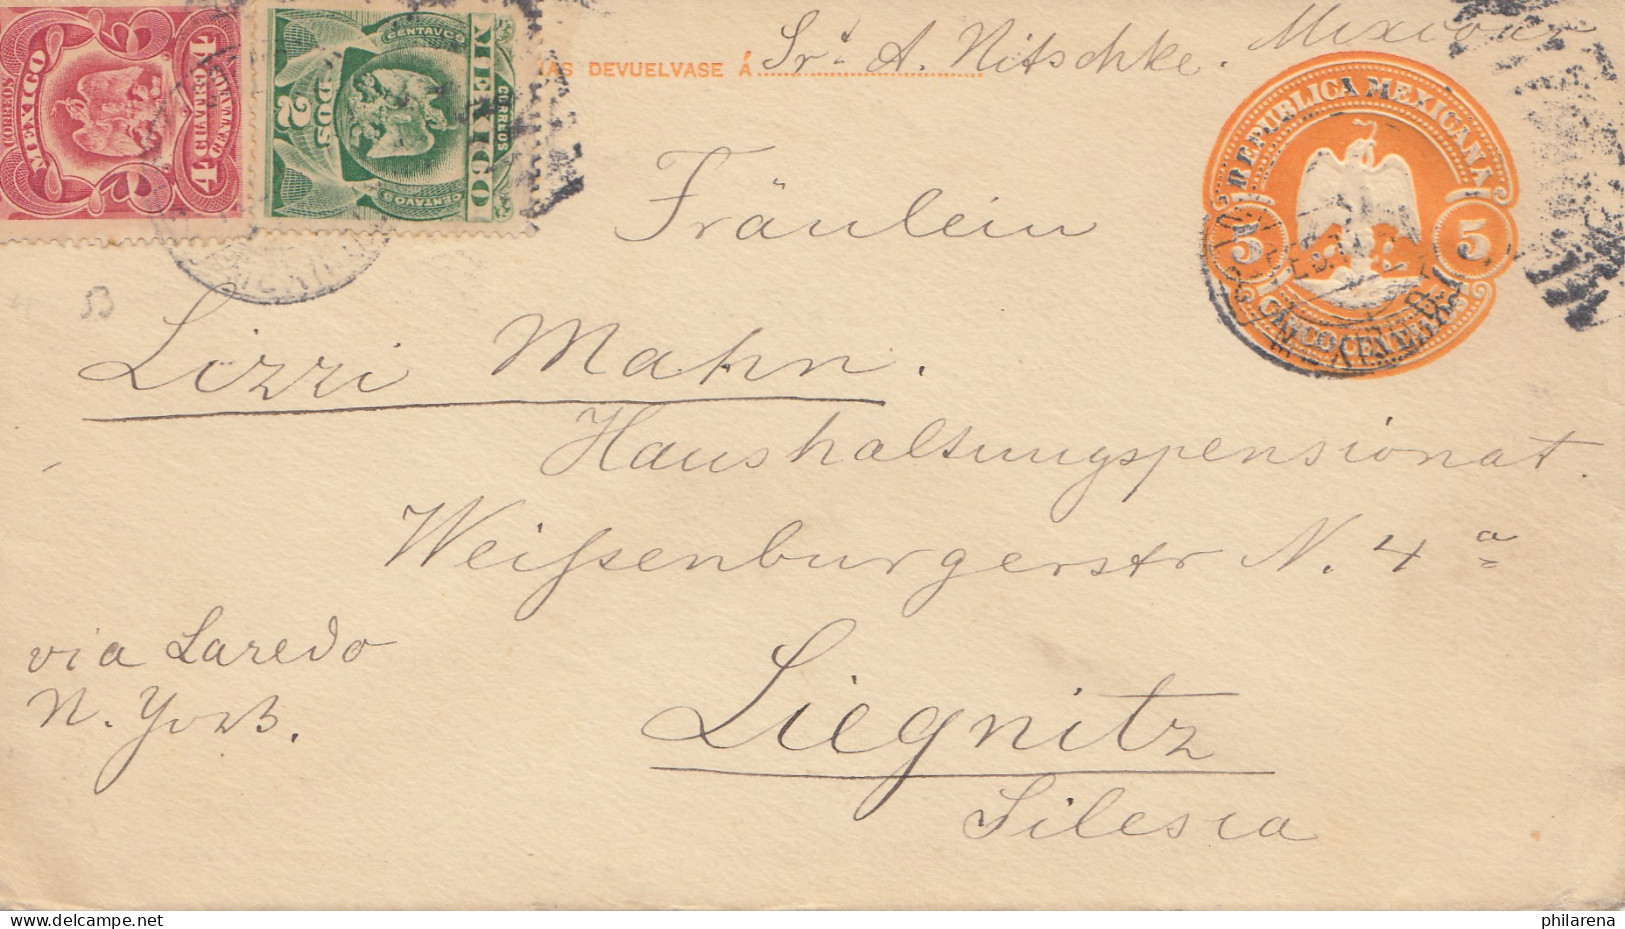 CORREOS
MEXICO
4 CUATRO 4
CENTAVOS
CENTAVOS
MEXICO
CORREOS
2 DOS
CENTAVOS
DEVUELVASE Á Sr. A. Nitschke. Mexico
REPUBLICA MEXICANA
5 5
CINCO CENTAVOS
Fräulein
Lizzi Mahn.
Haushaltungspensionat.
Weißenburgerstr N. 4 a
via Laredo
N. York.
Liegnitz
Silesia
philarena